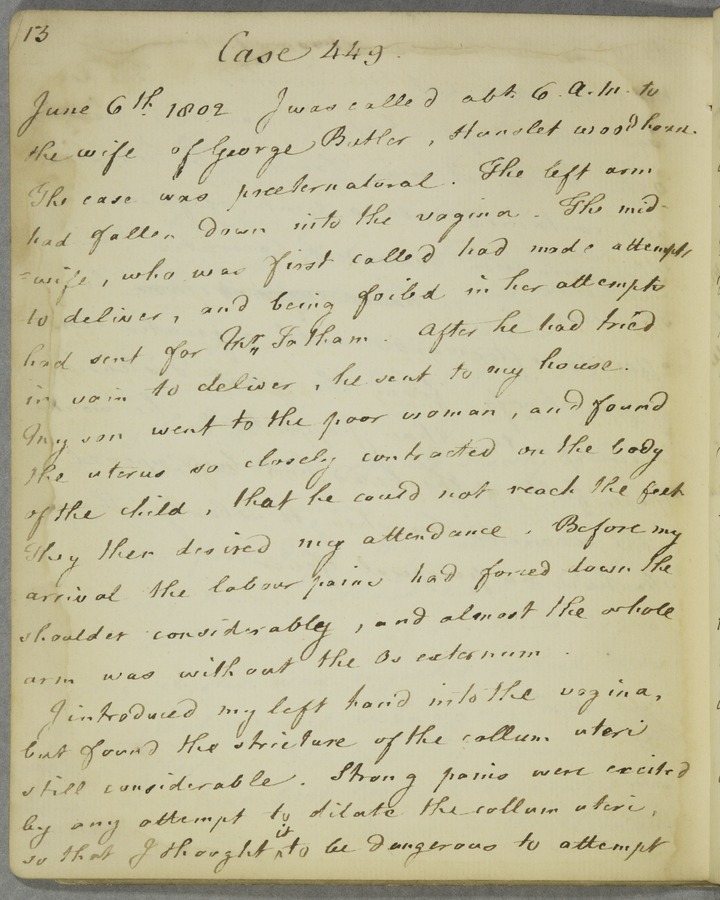 13
Case 449.
June 6th. 1802 I was called abt. 6. A.M. to
the wife of George Butler, Hunslet woodhouse.
The case was præternatural. The left arm
had fallen down into the vagina. The mid-
=wife, who was first called had made attempts
to deliver, and being foiled in her attempts
had sent for Mr. Tatham. After he had tried
in vain to deliver, he sent to my house.
My son went to the poor woman, and found
the uterus so closely contracted on the body
of the child, that he could not reach the feet
They then desired my attendance. Before my
arrival the labour pains had forced down the
shoulder considerably, and almost the whole
arm was without the Os externum.
I introduced my left hand into the vagina,
but found the stricture of the collum uteri
still considerable. Strong pains were excited
by any attempt to dilate the collum uteri,
so that I thought it to be dangerous to attempt